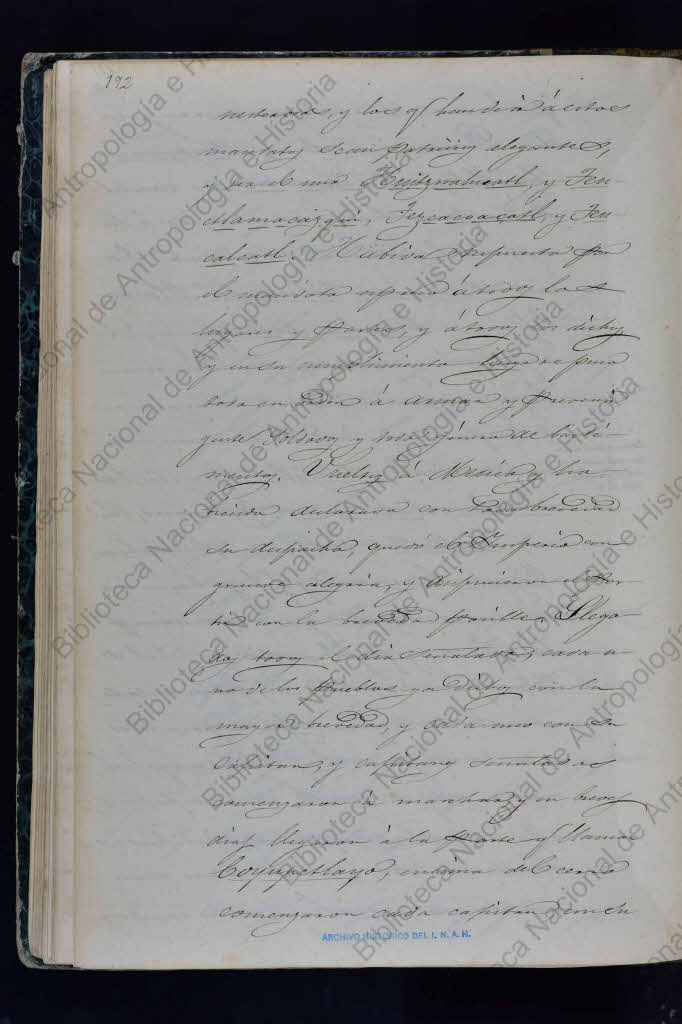 192
nesteroes, y los q̃ han de ir á estos
mandatos sean Pipiltin elegantes,
y sea el uno Huitznahuatl, y Teu-
ctlamacazqui, Tezcacoacatl, y Teu-
calcatl. Hubiva respuesta por
el
lugares y partes, y á todos los dichos
y en su cumplimiento luego se puso
todo en orden á armar y prevenir
gente soldados y todo género de basti-
mentos. Vueltos á Mexico y ha-
biendo declarado con toda brevedad
su despacho, quedó el Imperio con
grande alegria, y dispusieron el Par-
tir con la brevedad posible. Llega-
dos todos el dia señalado, cada u-
no de los Pueblos ya dichos con la
mayor brevedad, y cada uno con su
Capitan, y capitanes señalados
comenzaron á marchar y en breves
dias llegaron á la parte q̃ llaman
Coyupetlayo, encima del cerro
comenzaron cada capitan con su
ARCHIVO HISTORICO DEL I. N. A. H.
Biblioteca Nacional de Antropología e Historia